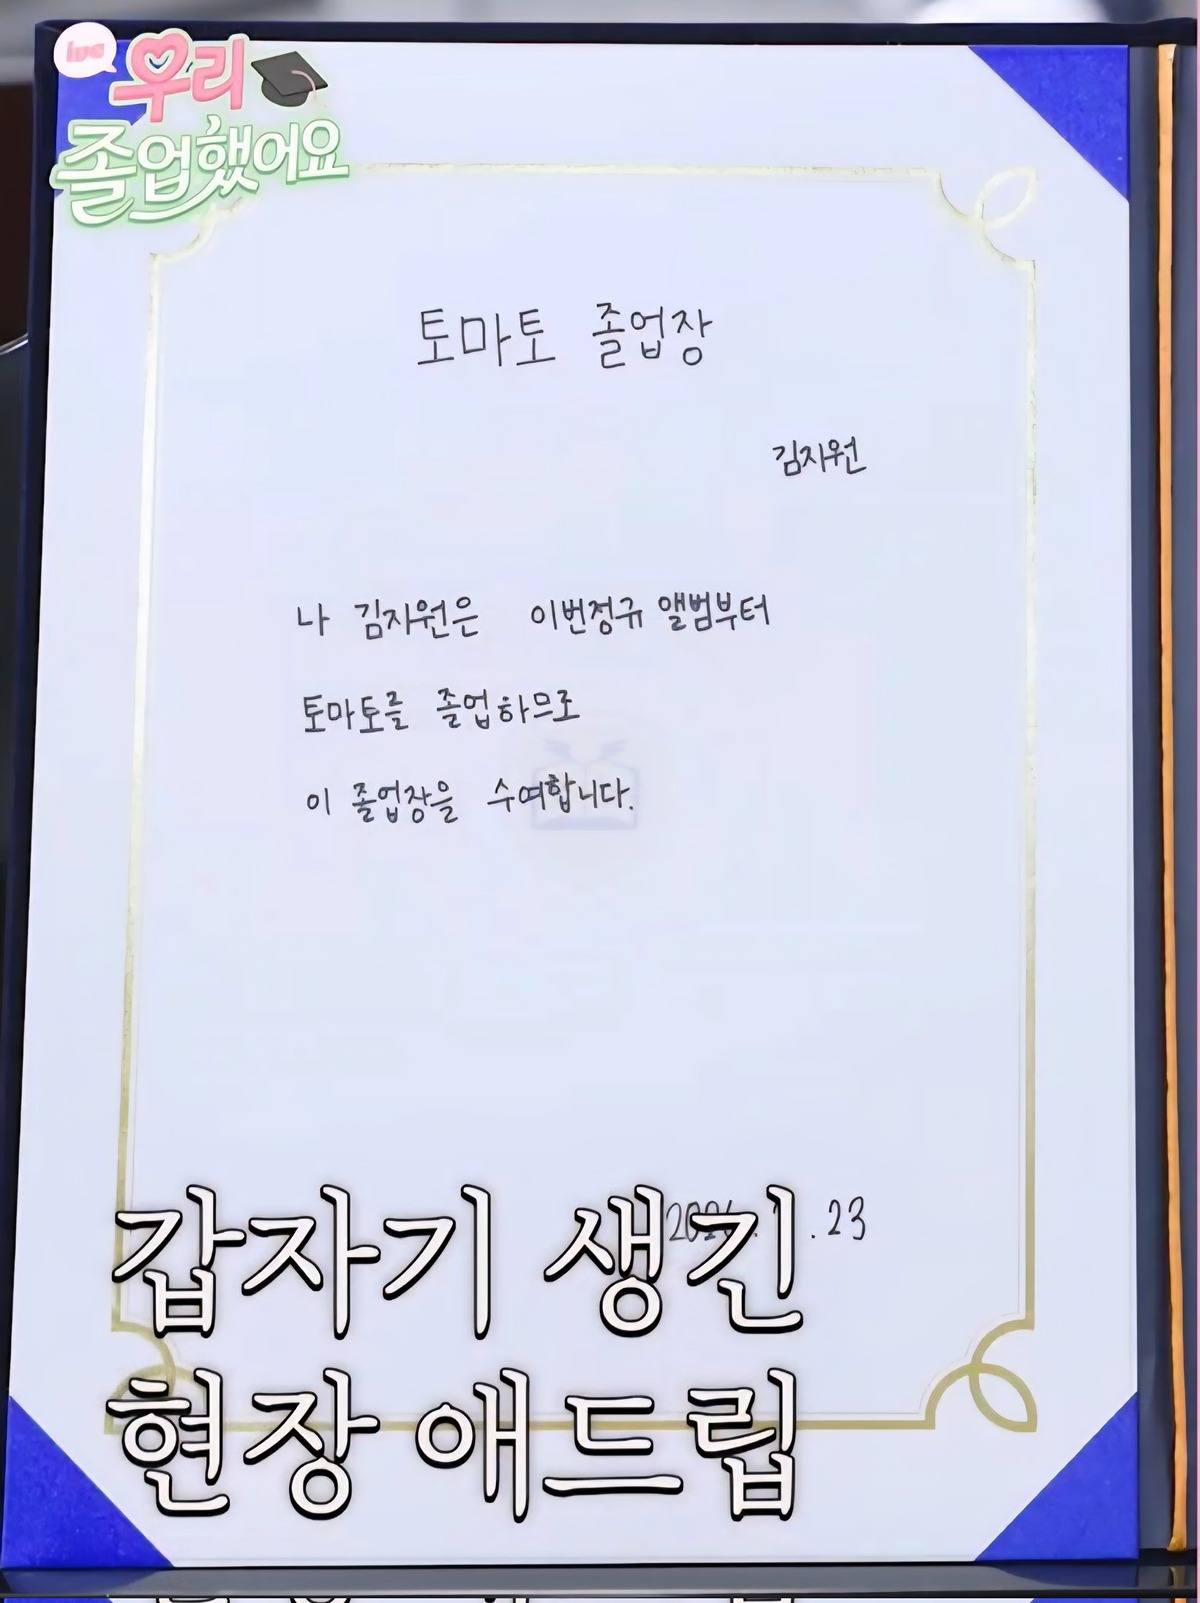 ive
우리
졸업했어요
토마토 졸업장
김지원
나 김지원은 이번정규 앨범부터
토마토를 졸업하므로
이 졸업장을 수여합니다.
.23
갑자기 생긴
현장 애드립